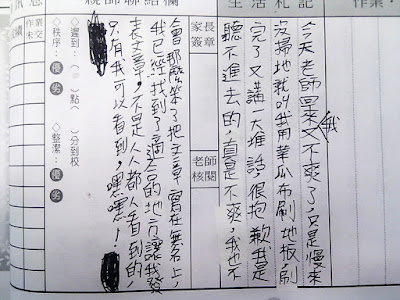 生活札記
作業:
今天老師又我不爽了,只是慢來
沒掃地就叫我用菜瓜布刷地板,刷
完了又講一大堆話,很抱歉我是
聽不進去的,真是不爽,我也不
家長簽章
老師核閱
親師聯絡欄
會那麼笨了把文章寫在無名上,
我已經找到了適合的地方讓我發
表文章,不是人人都人看到的,
只有我可以看到,嘿嘿!
◇遲到:( )點( )分到校
◇秩序:優 劣 ◇整潔:優 劣
作業未交